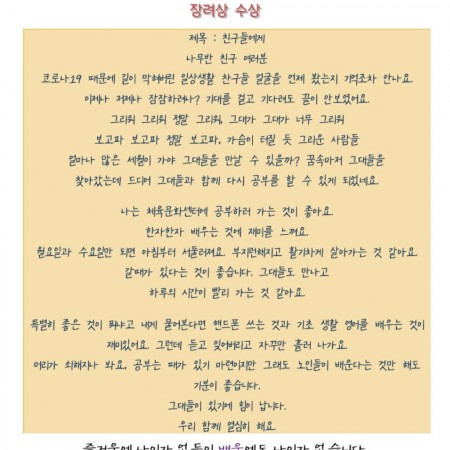 장려상 수상
제목 : 친구들에게
나무반 친구 여러분
코로나19 때문에 길이 막혀버린 일상생활 친구들 얼굴을 언제 봤는지 기억조차 안나요.
이제나 저제나 잠잠하려나? 기대를 걸고 기다려도 끝이 안보였어요.
그리워 그리워 정말 그리워, 그대가 그대가 너무 그리워
보고파 보고파 정말 보고파, 가슴이 터질 듯 그리운 사람들
얼마나 많은 세월이 가야 그대들을 만날 수 있을까? 꿈속마저 그대들을
찾아갔는데 드디어 그대들과 함께 다시 공부를 할 수 있게 되었네요.
나는 체육문화센터에 공부하러 가는 것이 좋아요.
한자한자 배우는 것에 재미를 느껴요.
월요일과 수요일만 되면 아침부터 서둘러져요. 부지런해지고 활기차게 살아가는 것 같아요.
갈때가 있다는 것이 좋습니다. 그대들도 만나고
하루의 시간이 빨리 가는 것 같아요.
특별히 좋은 것이 뭐냐고 내게 물어본다면 핸드폰 쓰는 것과 기초 생활 영어를 배우는 것이
재미있어요. 그런데 듣고 잊어버리고 자꾸만 흘러 나가요.
머리가 쇠해지나 봐요, 공부는 때가 있기 마련이지만 그래도 노인들이 배운다는 것만 해도
기분이 좋습니다.
그대들이 있기에 힘이 납니다.
우리 함께 열심히 해요.